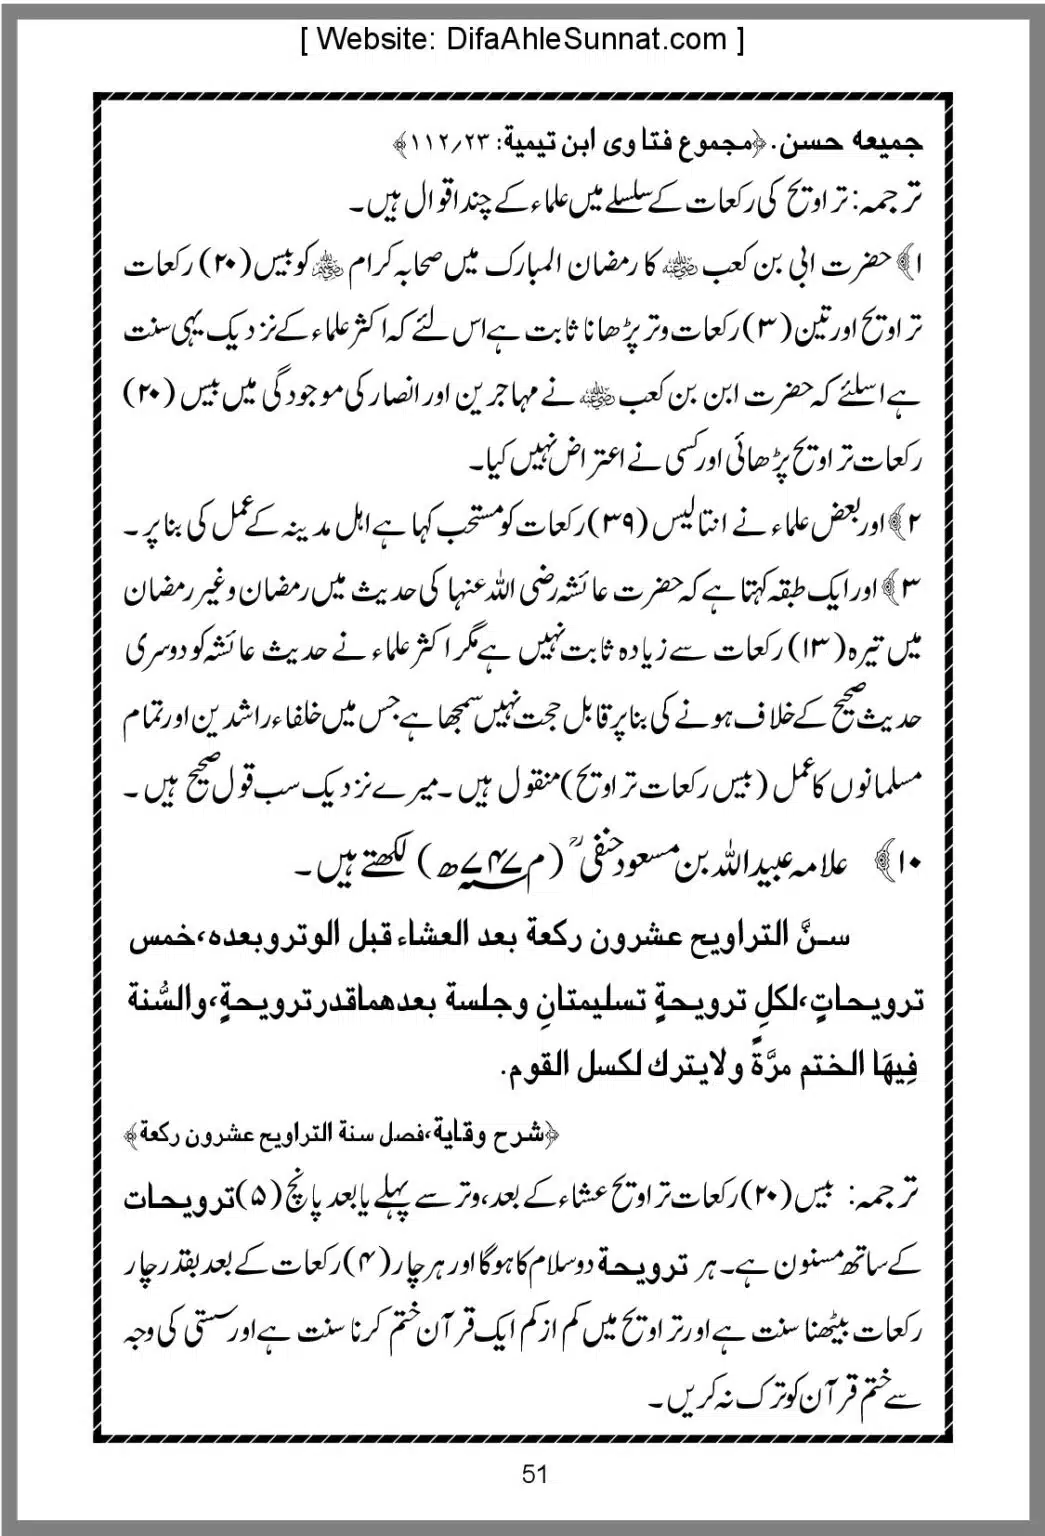 [ Website: DifaAhleSunnat.com ]
جمیعه حسن.﴿مجموع فتاوی ابن تیمیة: ۲۳؍۱۱۲﴾
ترجمہ: تراویح کی رکعات کے سلسلے میں علماء کے چند اقوال ہیں۔
۱﴾ حضرت ابی بن کعب رضی اللہ عنہ کا رمضان المبارک میں صحابہ کرام رضی اللہ عنہم کو بیس (۲۰) رکعات
تراویح اور تین (۳) رکعات وتر پڑھانا ثابت ہے اس لئے کہ اکثر علماء کے نزدیک یہی سنت
ہے اسلئے کہ حضرت ابن بن کعب رضی اللہ عنہ نے مہاجرین اور انصار کی موجودگی میں بیس (۲۰)
رکعات تراویح پڑھائی اور کسی نے اعتراض نہیں کیا۔
۲﴾ اور بعض علماء نے انتالیس (۳۹) رکعات کو مستحب کہا ہے اھل مدینہ کے عمل کی بنا پر ۔
۳﴾ اور ایک طبقہ کہتا ہے کہ حضرت عائشہ رضی اللہ عنہا کی حدیث میں رمضان و غیر رمضان
میں تیرہ (۱۳) رکعات سے زیادہ ثابت نہیں ہے مگر اکثر علماء نے حدیث عائشہ کو دوسری
حدیث صحیح کے خلاف ہونے کی بنا پر قابل حجت نہیں سمجھا ہے جس میں خلفاء راشدین اور تمام
مسلمانوں کا عمل (بیس رکعات تراویح) منقول ہیں ۔ میرے نزدیک سب قول صحیح ہیں ۔
۱۰﴾ علامہ عبید اللہ بن مسعود حنفیؒ (م ۷۴۷ھ) لکھتے ہیں ۔
سـنَّ التراویح عشرون رکعة بعد العشاء قبل الوتروبعده،خمس
ترویحاتٍ،لکلِ ترویحةٍ تسلیمتانِ وجلسة بعدهماقدرترویحةٍ،والسُّنة
فِیهَا الختم مرَّةً ولایترك لکسل القوم.
﴿شرح وقایة،فصل سنة التراویح عشرون رکعة﴾
ترجمہ: بیس (۲۰) رکعات تراویح عشاء کے بعد، وتر سے پہلے یا بعد پانچ (۵) ترویحات
کے ساتھ مسنون ہے۔ ہر ترویحة دو سلام کا ہوگا اور ہر چار (۴) رکعات کے بعد بقدر چار
رکعات بیٹھنا سنت ہے اور تراویح میں کم از کم ایک قرآن ختم کرنا سنت ہے اور سستی کی وجہ
سے ختم قرآن کو ترک نہ کریں ۔
51